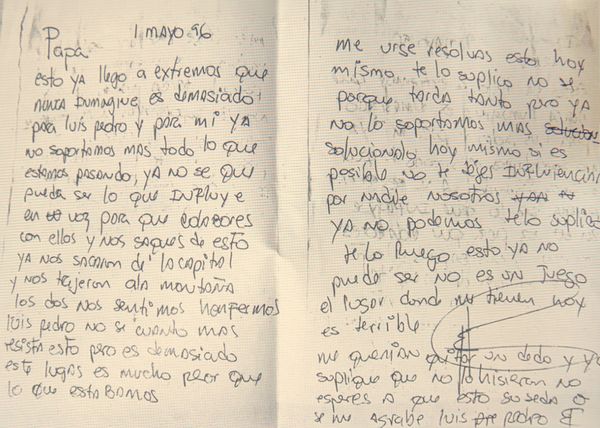 1 MAYO 96
Papa
esto ya llego a extremos que
nunca Imagine es demasiado
para luis pedro y para mi ya
no soportamos mas todo lo que
estamos pasando, ya no se que
pueda ser lo que INFluye
en voz para que colabores
con ellos y nos saques de esto
ya nos sacaron de la capital
y nos trajeron ala montaña
los dos nos sentimos henfermos
luis pedro no se cuanto mas
resista esto pero es demasiado
este lugar es mucho peor que
lo que estabamos
me urse resolvas esto hoy
mismo te lo suplico no se
porque tarda tanto pero ya
no lo soportamos mas
solucionalo hoy mismo si es
posible no te dejes
por nadie nosotros
ya no podemos te lo suplico
te lo Ruego esto ya no
puede ser no es un juego
el lugar donde me tienen hoy
es terrible
me querian quitar un dedo y yo
suplique que no lo hisieran no
esperes a que esto suseda o
se me agrabe luis pedro